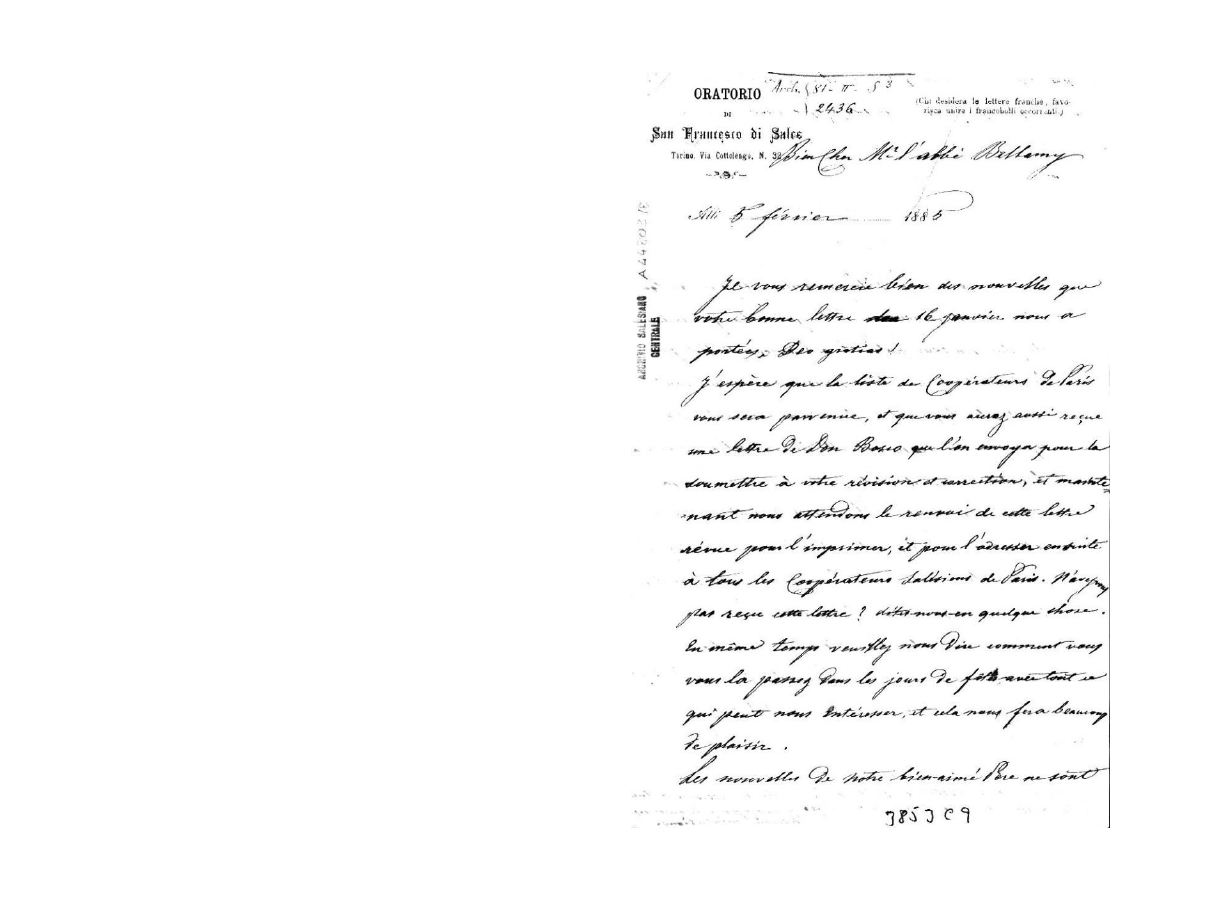 Arch. 81 - II - S 3
2436
ORATORIO
DI
San Francesco di Sales
Torino, Via Cottolengo, N. 32
(Chi desidera le lettere franche, favo-
risca unire i francobolli occorrenti.)
Bien Cher Mr l'abbé Bellamy
5 février 1885
Je vous remercie bien des nouvelles que
votre bonne lettre 16 janvier nous a
portées, Deo gratias!
J'espère que la liste de Coopérateurs de Paris
vous sera parvenue, et que vous aurez aussi reçue
une lettre de Don Bosco que l'on envoya pour la
soumettre à votre révision et correction, et mainte
nant nous attendons le renvoi de cette lettre
révue pour l'imprimer, et pour l'adresser ensuite
à tous les Coopérateurs Salésiens de Paris. N'avez vous
pas reçu cette lettre? dites-nous-en quelque chose.
En même temps veuillez nous dire comment vous
vous la passez dans les jours de fête avec tout ce
qui peut nous intéresser, et cela nous fera beaucoup
de plaisir.
Les nouvelles de notre bien-aimé Père ne sont
ARCHIVIO SALESIANO
CENTRALE
3853 C 9